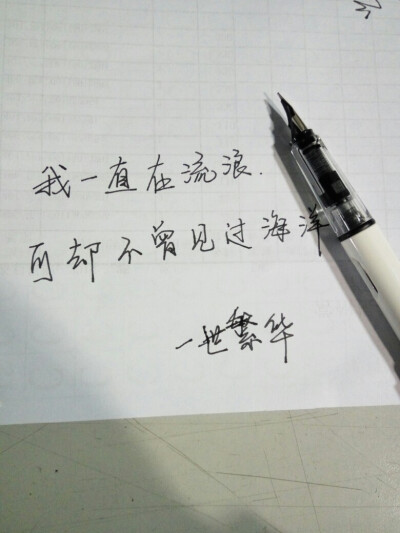 我一直在流浪.
可却不曾见过海洋
一世繁华